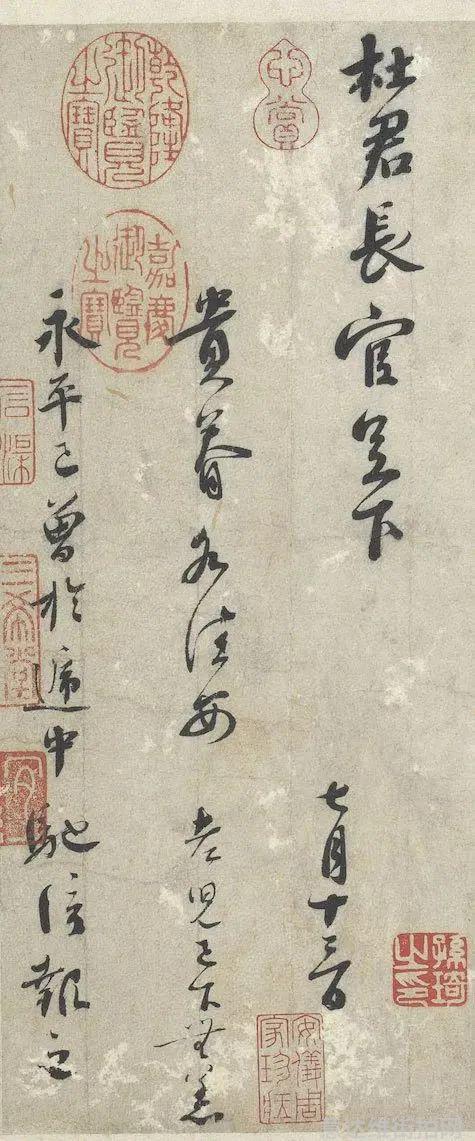 杜君長官足下
七月十三日
貴眷各佳安 老兒已下無恙
永平已曾於遞中馳信報之
心賞
乾隆御覽之寶
嘉慶御覽之寶
三希堂
安儀周家珍藏